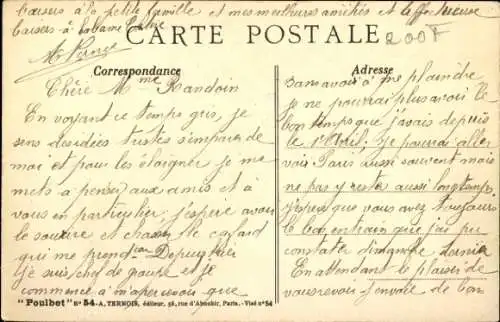 baisers à la petite famille et mes meilleures amitiés et affectueuse
baisers à
CARTE POSTALE
200F
Correspondance
Adresse
Chère Mme Randoin
En voyant ce temps gris, je
sens des idées tristes s'emparer de
moi et pour les éloigner je me
mets à penser aux amis et à
vous en particulier, j'espère avoir
le sourire et chasser le cafard
qui me prend Depuis hier
je suis chef de gare et je
commence à m'apercevoir que
sans avoir à me plaindre
je ne pourrai plus avoir le
bon temps que j'avais depuis
le 1er Avril, je pourrai aller
voir Paris aussi souvent mais
ne pas y rester aussi longtemps.
J'espère que vous avez toujours
le bon entrain que j'ai pu
constater dimanche dernier
En attendant le plaisir de
vous revoir j'envoie de bon
"Poulbot" N° 54 - A, TERNOIS, éditeur, 56, rue d'Aboukir, Paris. - Visé n° 54